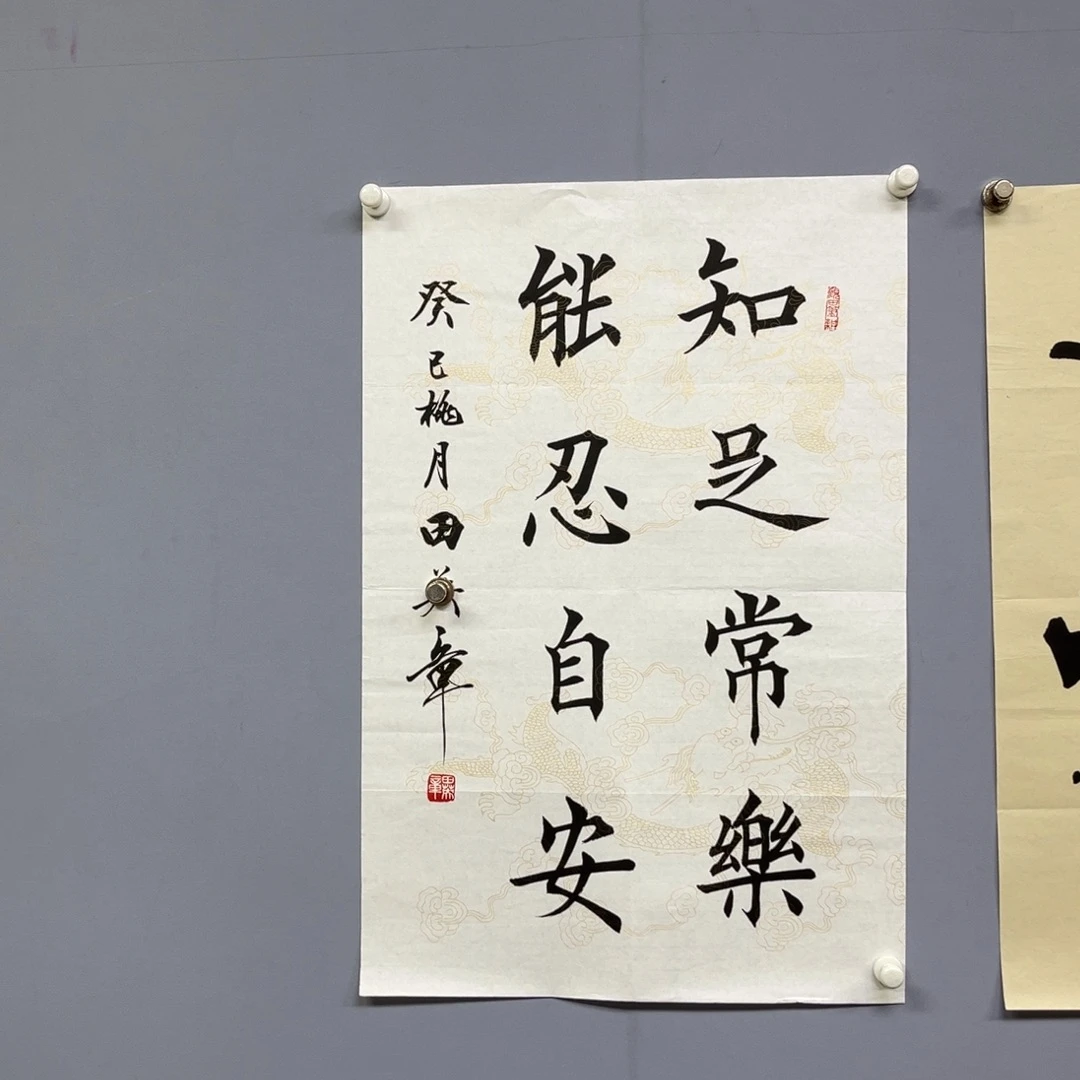 知足常樂
能忍自安
癸巳桃月田英章